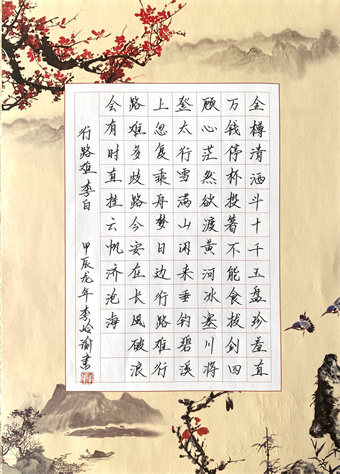 金樽清酒斗十千玉盘珍羞直
万钱停杯投箸不能食拔剑四
顾心茫然欲渡黄河冰塞川将
登太行雪满山闲来垂钓碧溪
上忽复乘舟梦日边行路难行
路难多歧路今安在长风破浪
会有时直挂云帆济沧海
行路难 李白 甲辰龙年李岭瑜书